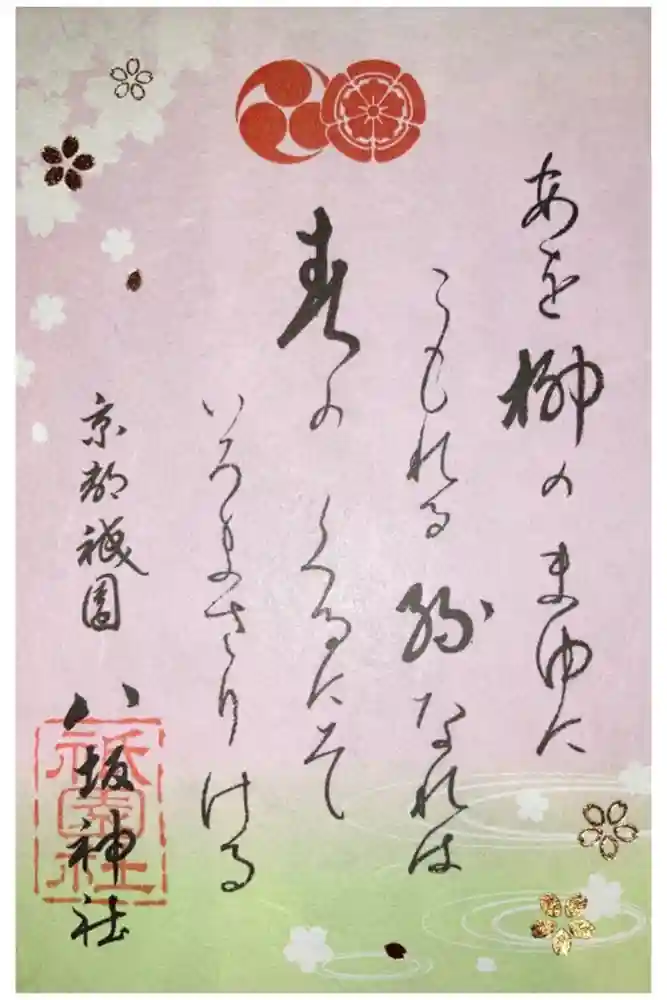 あを柳のまゆに
こもれる糸なれは
春のくるにそ
いろまさりける
京都祇園
八坂神社
祇園社